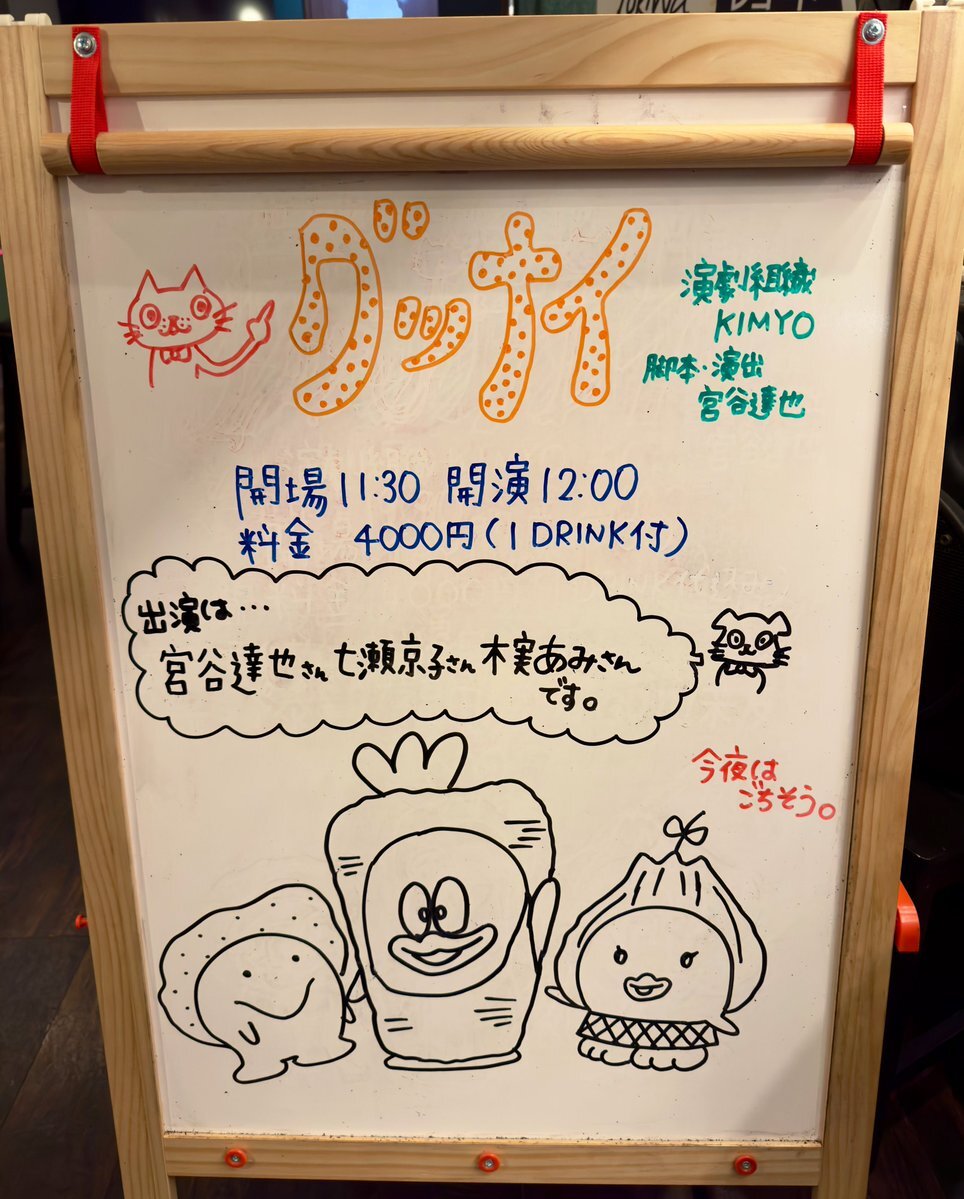 グッナイ
演劇組織
KIMYO
脚本・演出
宮谷達也
開場11:30 開演12:00
料金 4000円(1DRINK付)
出演は…
宮谷達也さん 七瀬京子さん 木実あみさん
です。
今夜は
ごちそう。